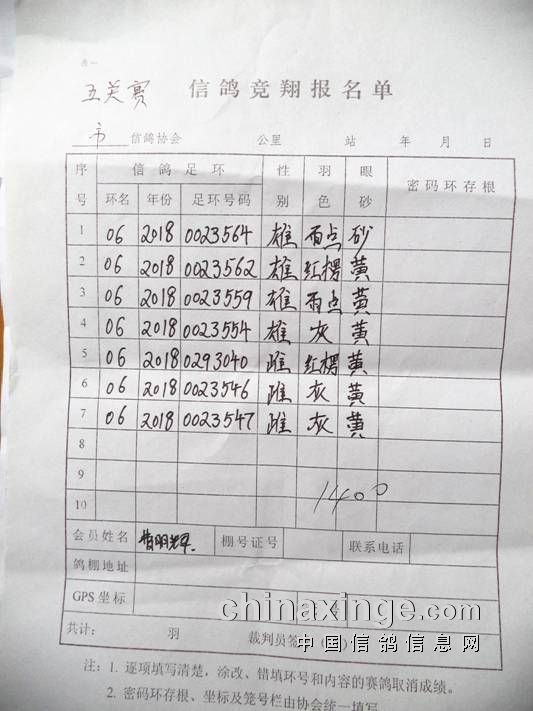 表一
五关赛 信鸽竞翔报名单
市 信鸽协会 公里 站 年 月 日
序号 信鸽足环 性别 羽色 眼砂 密码环存根
环名 年份 足环号码
1 06 2018 0023564 雄 雨点 砂
2 06 2018 0023562 雄 红楞 黄
3 06 2018 0023559 雄 雨点 黄
4 06 2018 0023554 雄 灰 黄
5 06 2018 0293040 雌 红楞 黄
6 06 2018 0023546 雌 灰 黄
7 06 2018 0023547 雌 灰 黄
8
9
10 1400
会员姓名 棚号证号 联系电话
鸽棚地址
GPS坐标
共计: 羽 裁判员签
chinaxinge.com
中国信鸽信息网
注: 1. 逐项填写清楚，涂改、错填环号和内容的赛鸽取消成绩。
2. 密码环存根、坐标及笼号栏由协会统一填写